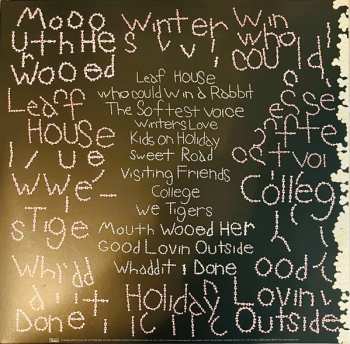 Mooo Winter Win
uthHe s v v i who
r coul d,
wooed
Leaf House
who could win a Rabbit
The Softest Voice
Winters Love
Kids on Holiday
Sweet Road
Visiting Friends
College
We Tigers
Mouth Wooed Her
Good Lovin Outside
Whaddit i Done
Leaff
House
i,ue
wwe'-
sTige
Whidd
d i it
Done,
esse
Colleg
ood
Holiday Lovin,
Outside